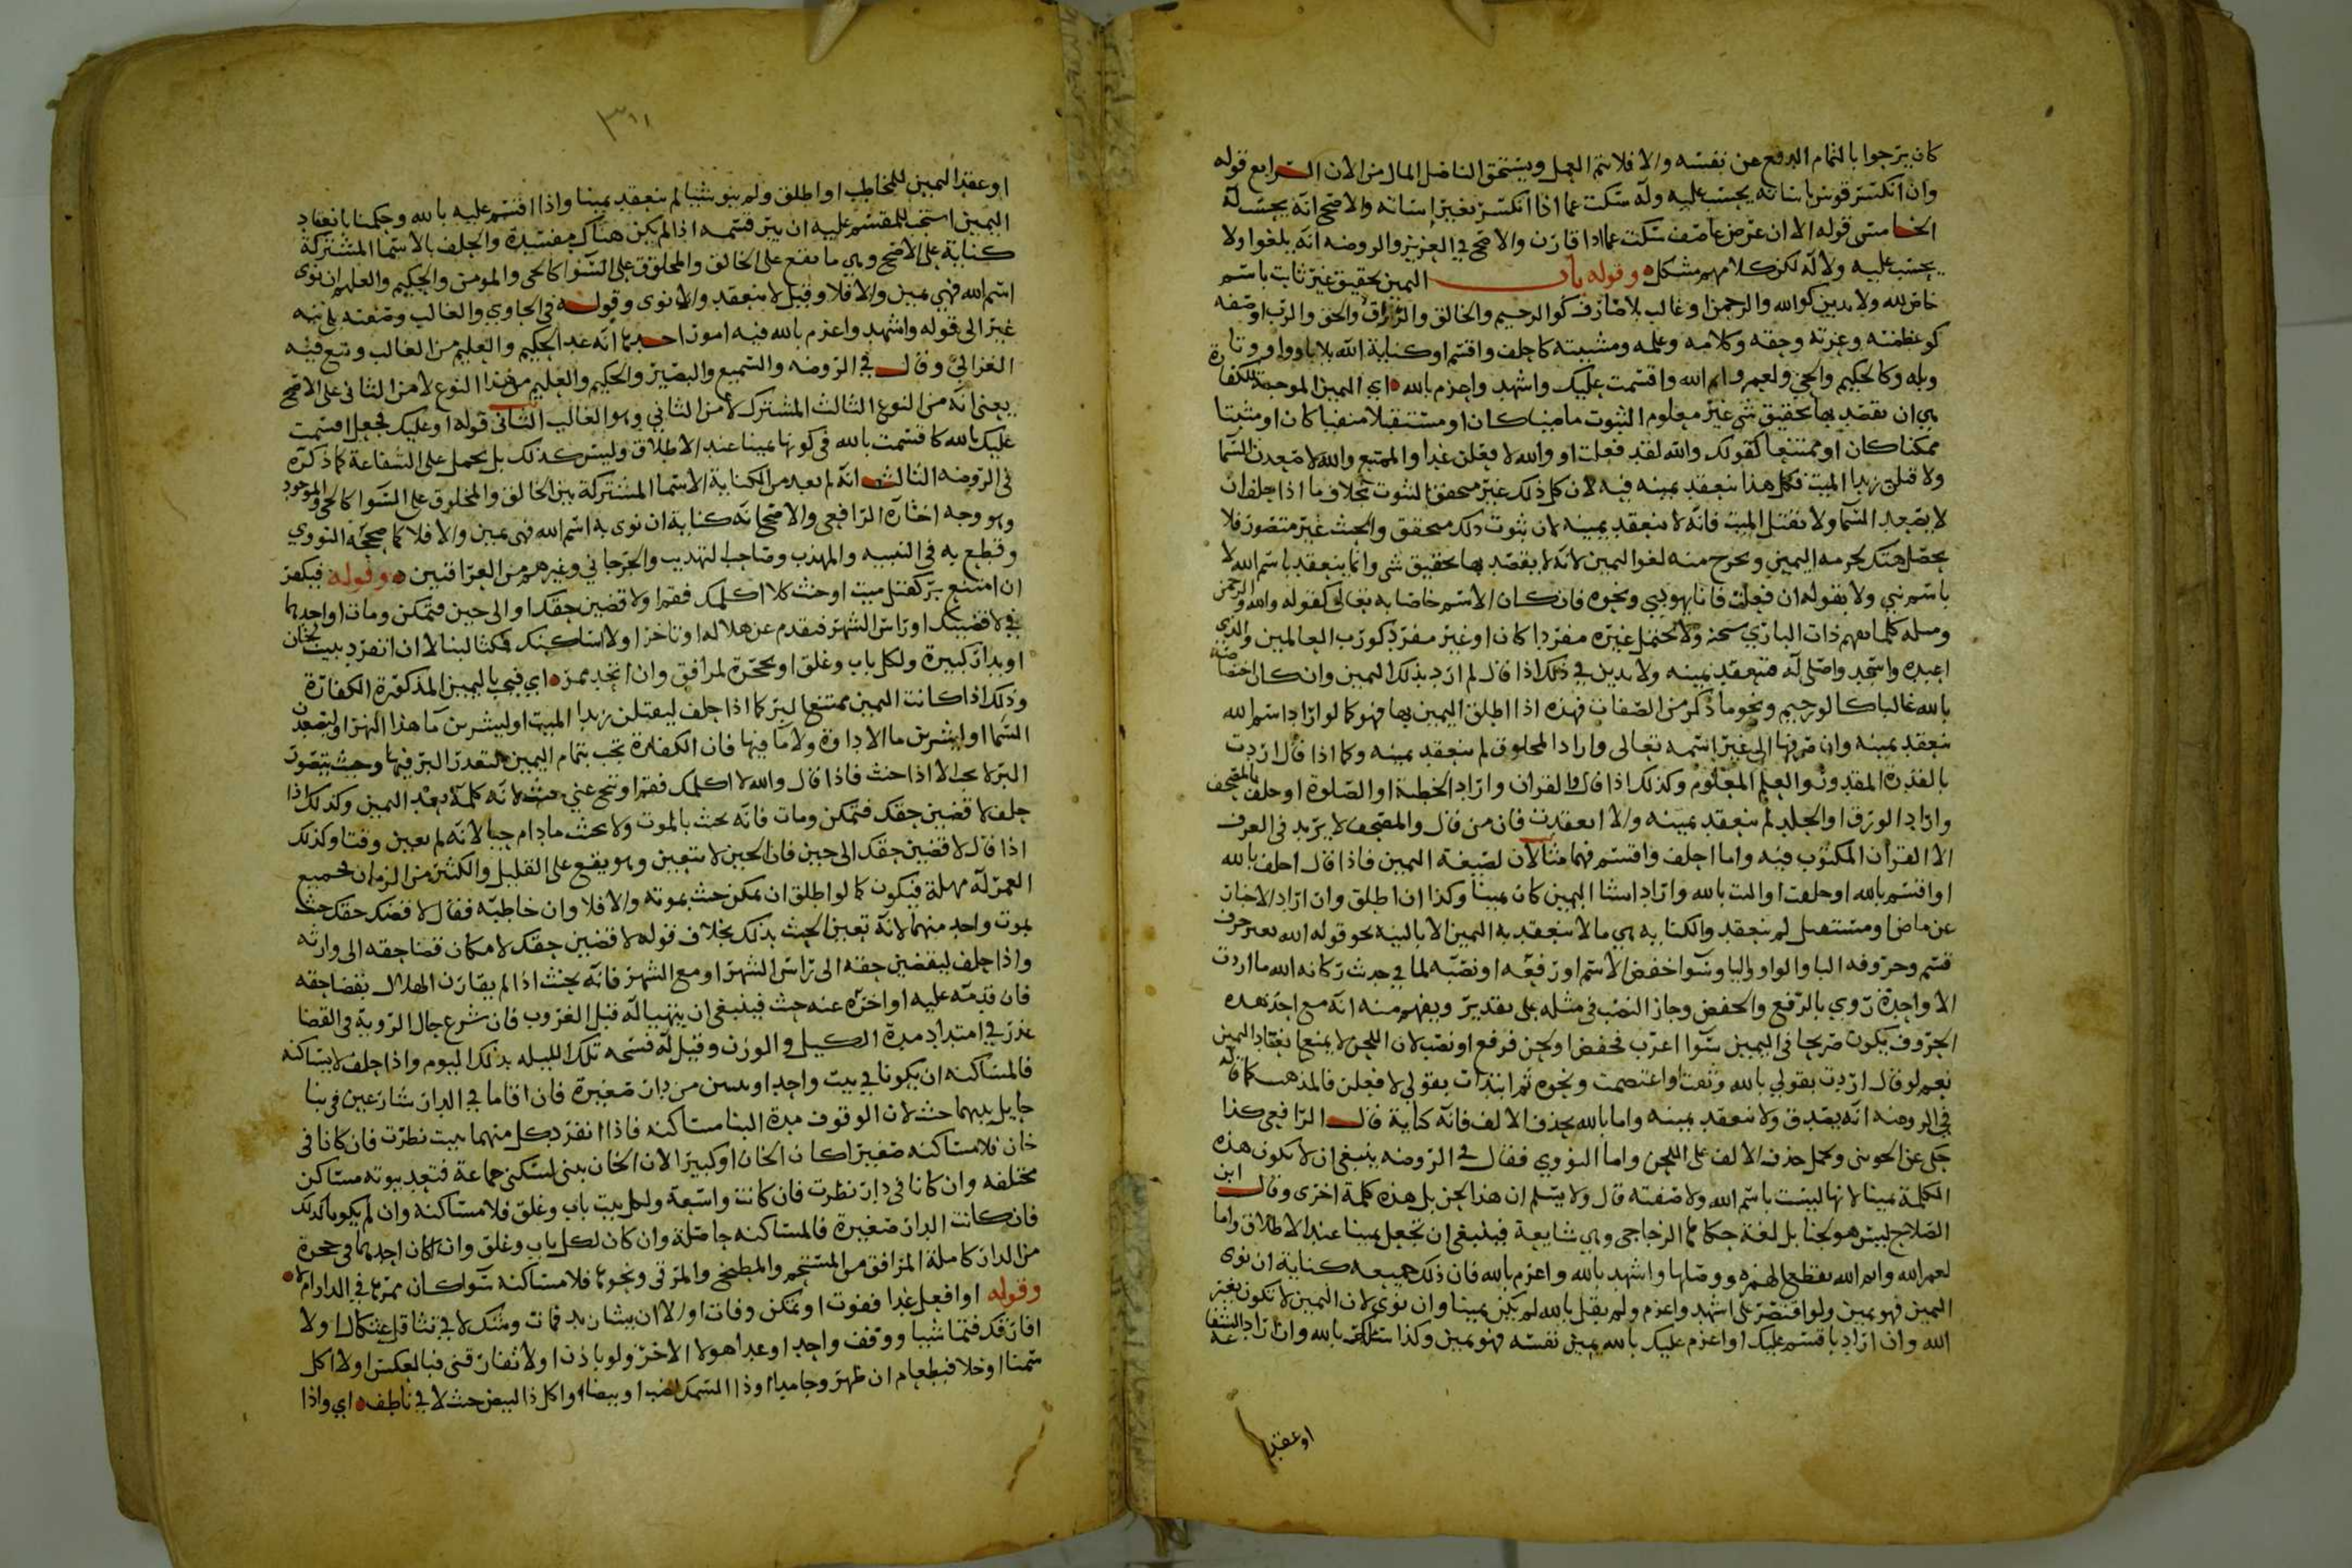 كان يرجوا بالتمام الدفع عن نفسه والا فلا يتم العمل ويستحق الناضل المال من الان الرابع قوله
وان انكسر قوس باساته يحسب عليه وله سكت عما اذا انكسر بغير اساته والاصح انه يحسب له
الخامس قوله الا ان عرض عاصف سكت عما اذا قارن والاصح في العزيز والروضه انه يلغوا ولا
يحسب عليه ولا له لكن كلامهم مشكل وقوله باب اليمين تحقيق غير ثابت باسم
خاص لله ولا يدين كوالله والرحمن او غالب بلا صارف كوالرحيم والخالق والرزاق والحق والرب او صفه
كوعظمته وعزته وحقه وكلامه وعلمه ومشيته كاحلف واقسم او كناية الله بلا باء وواو وتا
وبله وكالحكيم والحي ولعمر وايم الله واقسمت عليك واشهد واعزم بالله اي اليمين الموجبة للكفارة
هي ان يقصد بها تحقيق شي غير معلوم الثبوت ماضيا كان او مستقبلا منفيا كان او مثبتا
ممكنا كان او ممتنعا كقولك والله لقد فعلت او والله لافعلن غدا والممتنع والله لاصعدن السما
ولاقتلن زيدا الميت فكل هذا ينعقد يمينه فيه لان كل ذلك غير متحقق الثبوت بخلاف ما اذا حلف ان
لا يصعد السما ولا يقتل الميت فانه لا ينعقد يمينه لان ثبوت ذلك متحقق والحنث غير متصور فلا
يحصل هتك لحرمه اليمين ويخرج منه لغوا اليمين لانه لا يقصد بها تحقيق شي وانما ينعقد باسم الله لا
باسم نبي ولا بقوله ان فعلت فانا يهودي ونحوه فان كان الاسم خاصا به تعالى كقوله والله والرحمن
ومسله كلما يفهم ذات الباري سبحنه ولا يحتمل غيره مفردا كان او غير مفرد كورب العالمين والذي
اعبده واسجد واصلي له فتنعقد يمينه ولا يدين في ذلك اذا قال لم ارد بذلك اليمين وان كان اختصاصه
بالله غالبا كالرحيم ونحو ما ذكر من الصفات فهذه اذا اطلق اليمين بها فهو كما لو اراد اسم الله
ينعقد يمينه وان صرفها الى غير اسمه تعالى واراد المخلوق لم ينعقد يمينه وكما اذا قال اردت
بالقدرة المقدور والعلم المعلوم وكذلك اذا قال والقران واراد الخطبة او الصلوة او حلف بالمصحف
واراد الورق او الجلد لم ينعقد يمينه والا انعقدت فان من قال والمصحف لا يريد في العرف
الا القران المكتوب فيه واما احلف واقسم فهما مثالان لصيغة اليمين فاذا قال احلف بالله
او اقسم بالله او حلفت او اليت بالله واراد انشا اليمين كان يمينا وكذا ان اطلق وان اراد الاخبار
عن ماض او مستقبل لم ينعقد والكنايه هي ما لا ينعقد به اليمين الا بالنيه نحو قوله الله بغير حرف
قسم وحروفه البا والواو والتا وسوا خفض الاسم او رفعه او نصبه لما في حديث ركانه الله ما اردت
الا واحدة روي بالرفع والخفض وجاز النصب في مثله على تقدير ويفهم منه انه مع احد هذه
الحروف يكون صريحا في اليمين سوا اعرب فخفض او لحن فرفع او نصب لان اللحن لا يمنع انعقاد اليمين
نعم لو قال اردت بقولي بالله وثقت او اعتصمت ونحوه ثم ابتدات بقولي لافعلن فالمذهب كما قاله
في الروضه انه يصدق ولا ينعقد يمينه واما بالله بحذف الالف فانه كناية قال الرافعي كذا
حكي عن الجويني وحمل حذف الالف على اللحن واما النووي فقال في الروضه ينبغي ان لا يكون هذه
الكلمة يمينا لانها ليست باسم الله ولا صفته قال ولا يسلم ان هذا لحن بل هذه كلمة اخرى وقال ابن
الصلاح ليس هو لحنا بل لغة حكاها الزجاجي وهي شايعة فينبغي ان تجعل يمينا عند الاطلاق واما
لعمر الله وايم الله بقطع الهمزه ووصلها واشهد بالله واعزم بالله فان ذلك جميعه كناية ان نوى
اليمين فهو يمين ولو اقتصر على اشهد واعزم ولم يقل بالله لم يكن يمينا وان نوى لان اليمين لا تكون بغير
الله وان اراد باقسم عليك او اعزم عليك بالله يمين نفسه فهو يمين وكذا سالتك بالله وان اراد الشفاعة
او عقد
٣١١
او عقد اليمين للمخاطب او اطلق ولم ينو شيا لم ينعقد يمينا واذا اقسم عليه بالله وحكمنا بانعقاد
اليمين استحب للمقسم عليه ان يبر قسمه اذا لم يكن هناك مفسدة والحلف بالاسما المشتركة
كناية على الاصح وهي ما يقع على الخالق والمخلوق على السوا كالحي والمومن والحكيم والعليم ان نوى
اسم الله فهي يمين والا فلا وقيل لا ينعقد وان نوى وقوله في الحاوي والغالب وصفته بلا نيه
غير الى قوله واشهد واعزم بالله فيه امور احدها انه عد الحكيم والعليم من الغالب وتبع فيه
الغزالي وقال في الروضه والسميع والبصير والحكيم والعليم من هذا النوع لا من الثاني على الاصح
يعني انه من النوع الثالث المشترك لا من الثاني وهو الغالب الثاني قوله او عليك فجعل اقسمت
عليك بالله كاقسمت بالله في كونها يمينا عند الاطلاق وليس كذلك بل يحمل على الشفاعة كما ذكره
في الروضه الثالث انه لم يعد من الكناية الاسما المشتركة بين الخالق والمخلوق على السوا كالحي والموجود
وهو وجه اختاره الرافعي والاصح انه كناية ان نوى به اسم الله فهي يمين والا فلا كما صححه النووي
وقطع به في التنبيه والمهذب وصاحب التهذيب والجرجاني وغيرهم من العراقيين وقوله فيكفر
ان امتنع بر كقتل ميت او حنث كلا اكلمك فقم او لاقضين حقك او الى حين فتمكن ومات او احدهما
في لاقضينك او راس الشهر فتقدم عن هلاله او تاخر او لا اساكنك فمكثا لبنا لا ان انفرد ببيت بخان
او بدار كبيرة ولكل باب وغلق او بحجرة لمرافق وان اتحد ممر اي فتجب باليمين المذكورة الكفارة
وذلك اذا كانت اليمين ممتنعا البر كما اذا حلف ليقتلن زيدا الميت او ليشربن ما هذا النهر او ليصعدن
السما او ليشربن ما الاداوة ولا ما فيها فان الكفارة تجب بتمام اليمين لتعذر البر فيها وحيث يتصور
البر لا يجب الا اذا حنث فاذا قال والله لا اكلمك فقم او تنح عني حنث لانه كلمه بعد اليمين وكذلك اذا
حلف لاقضين حقك فتمكن ومات فانه يحنث بالموت ولا يحنث ما دام حيا لانه لم يعين وقتا وكذلك
اذا قال لاقضين حقك الى حين فان الحين لا يتعين وهو يقع على القليل والكثير من الزمان فجميع
العمر له مهلة فيكون كما لو اطلق ان تمكن حنث بموته والا فلا وان خاطبه فقال لاقضينك حقك حنث
بموت واحد منهما لانه تعين الحنث بذلك بخلاف قوله لاقضين حقك لامكان قضا حقه الى وارثه
واذا حلف ليقضين حقه الى راس الشهر او مع الشهر فانه يحنث اذا لم يقارن الهلال بقضا حقه
فان قدمه عليه او اخره عنه حنث فينبغي ان يتهيا له قبل الغروب فان شرع حال الروية في القضا
عذر في امتداد مدة الكيل والوزن وقيل له فسحه تلك الليله بذلك اليوم واذا حلف لا يساكنه
فالمساكنه ان يكونا في بيت واحد او بيتين من دار صغيرة فان اقاما في الدار شارعين في بنا
حايل بينهما حنث لان الوقوف مدة البنا مساكنه فاذا انفرد كل منهما ببيت نظرت فان كانا في
خان فلا مساكنه صغيرا كان الخان او كبيرا لان الخان بني لسكنى جماعة فتعد بيوته مساكن
مختلفه وان كانا في دار نظرت فان كانت واسعة ولكل بيت باب وغلق فلا مساكنه وان لم يكونا كذلك
فان كانت الدار صغيرة فالمساكنه حاصلة وان كان لكل باب وغلق وان كان احدهما في حجرة
من الدار كاملة المرافق من المستحم والمطبخ والمرقى ونحوها فلا مساكنه سوا كان ممرها في الدار ام لا
وقوله او افعل غدا ففوت او تمكن وفات او لا ان يشا زيد فمات وشك لا في تثاقل عثكال او لا
افارقك فتماشيا ووقف واحد او عبدا هو لا الاخر ولو باذن او لا تفارقني فبالعكس او لا اكل
سمنا او خلا فبطعام ان ظهر وجامدا او ذا السمك لصيد او بيضا واكل ذا البيض حنث لا في ناطف اي واذا